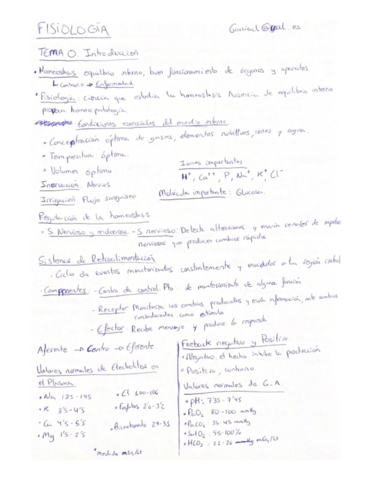 FISIOLOGÍA
TEMA 0. Introducción
• Homeostasis equilibrio interno, buen funcionamiento de órganos y aparatos
↳ Contrario → Enfermedad
• Fisiología: ciencia que estudia la homeostasis Ausencia de equilibrio interno
homeopatología.
Condiciones esenciales del medio interno
• Concentración óptima de gases, elementos nutritivos, iones y agua.
• Temperatura óptima.
• Volumen óptimo
Iones importantes
H⁺, Ca⁺⁺, P, Na⁺, K⁺, Cl⁻
Inervación Nervios
Irrigación Flujo sanguíneo
Molécula importante: Glucosa.
Regulación de la homeostasis
• S. Nervioso y endocrino - S. nervioso: Detecta alteraciones y envía señales de impulsos
nerviosos que producen cambios rápidos
Sistema de Retroalimentación
- Ciclo de eventos monitorizados constantemente y mandados a la región central
- Componentes - Centro de control Pto de mantenimiento de alguna función
- Receptor Monitoriza los cambios producidos y envía información, este cambio
considerados como estímulo
- Efector Recibe mensaje y produce la respuesta
Aferente → Centro → Eferente
Valores normales de Electrolitos en
el Plasma
• Na 135-145
• K 3'5-4'5
• Ca 4'5-5'5
• Mg 1'5-2'5
• Cl 100-106
• Fosfatos 2'0-3'5
• Bicarbonato 24-31
*medida mEq/l
Feedback negativo y Positivo
• Negativo el hecho inhibe la producción
• Positivo, contrario
Valores normales de G.A.
• pH: 7'35-7'45
• PaO₂ 80-100 mmHg
• PaCO₂ 35-45 mmHg
• SatO₂ 95-100%
• HCO₃⁻ 22-26 mEq/l